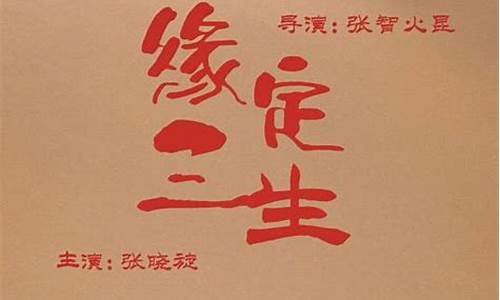 导演:张智火星
緣定
三生
主演:张晓旋